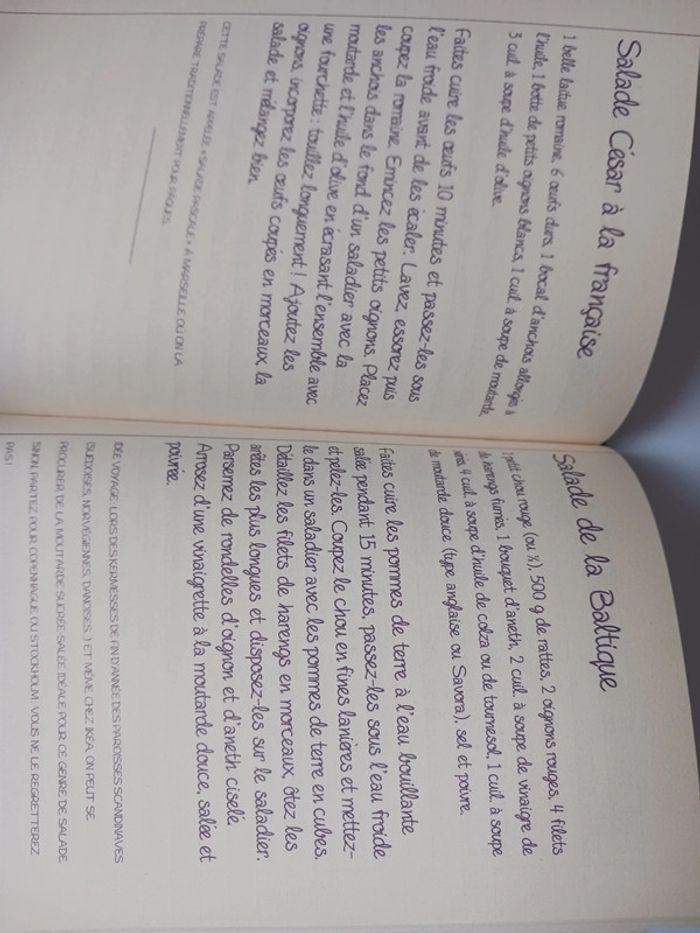 Salade César à la française
1 belle laitue romaine, 6 œufs durs, 1 bocal d'anchois allongés à
l'huile, 1 botte de petits oignons blancs, 1 cuil. à soupe de moutarde,
3 cuil. à soupe d'huile d'olive.
Faites cuire les œufs 10 minutes et passez-les sous
l'eau froide avant de les écaler. Lavez, essorez puis
coupez la romaine. Émincez les petits oignons. Placez
les anchois dans le fond d'un saladier avec la
moutarde et l'huile d'olive en écrasant l'ensemble avec
une fourchette : touillez longuement ! Ajoutez les
oignons, incorporez les œufs coupés en morceaux, la
salade et mélangez bien.
CETTE SALADE EST APPELÉE « SALADE PASCALE » À MARSEILLE OÙ ON LA
PRÉPARE TRADITIONNELLEMENT POUR PÂQUES.
Salade de la Baltique
1 petit chou rouge (ou ½), 500 g de rattes, 2 oignons rouges, 4 filets
de harengs fumés, 1 bouquet d'aneth, 2 cuil. à soupe de vinaigre de
4 cuil. à soupe d'huile de colza ou de tournesol, 1 cuil. à soupe
de moutarde douce (type anglaise ou Savora), sel et poivre.
Faites cuire les pommes de terre à l'eau bouillante
salée pendant 15 minutes, passez-les sous l'eau froide
et pelez-les. Coupez le chou en fines lanières et mettez-
le dans un saladier avec les pommes de terre en cubes.
Détaillez les filets de harengs en morceaux, ôtez les
arêtes les plus longues et disposez-les sur le saladier.
Parsemez de rondelles d'oignon et d'aneth ciselé.
Arrosez d'une vinaigrette à la moutarde douce, salée et
poivrée.
IDÉE VOYAGE : LORS DES KERMESSES DE FIN D'ANNÉE DES PAROISSES SCANDINAVES
(SUÉDOISES, NORVÉGIENNES, DANOISES...) ET MÊME CHEZ IKÉA, ON PEUT SE
PROCURER DE LA MOUTARDE SUCRÉE-SALÉE IDÉALE POUR CE GENRE DE SALADE.
SINON, PARTEZ POUR COPENHAGUE OU STOCKHOLM : VOUS NE LE REGRETTEREZ
PAS !